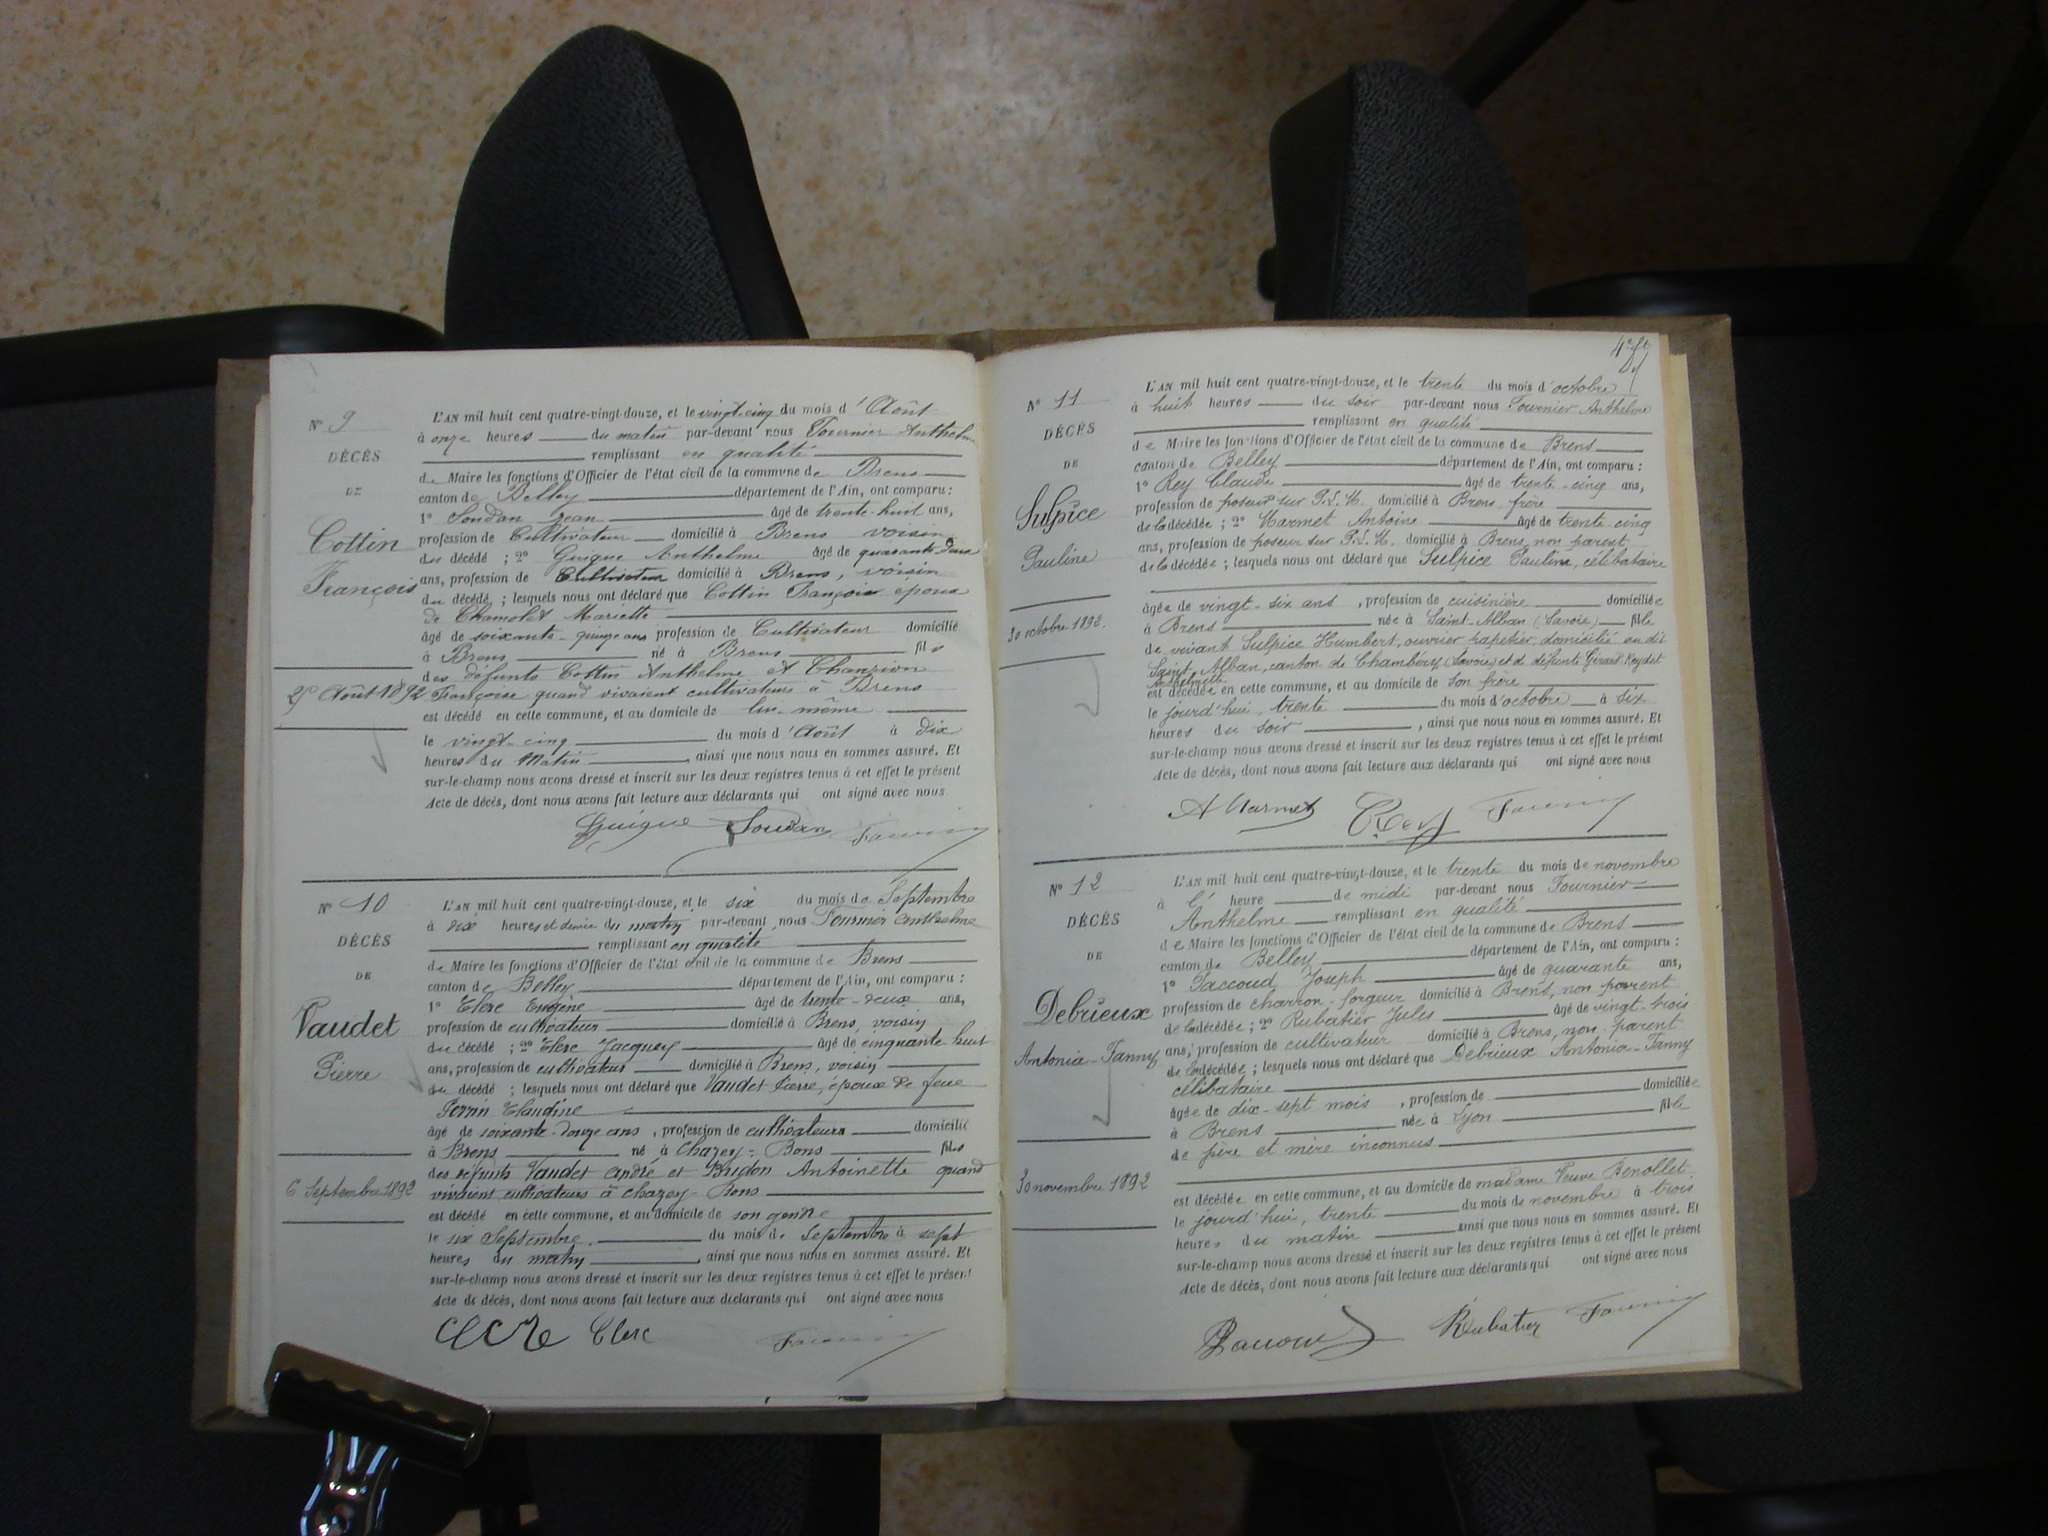 N° 9
DÉCÈS
DE
Cottin
François
25 Août 1892
L'AN mil huit cent quatre-vingt-douze, et le vingt-cinq du mois d'Août
à onze heures du matin par-devant nous Fournier Anthelme
remplissant en qualité
de Maire les fonctions d'Officier de l'état civil de la commune de Brens
canton de Belley département de l'Ain, ont comparu :
1° Soudan Jean âgé de trente-huit ans,
profession de Cultivateur domicilié à Brens voisin
du décédé ; 2° Guigue Anthelme âgé de quarante-deux
ans, profession de Cultivateur domicilié à Brens, voisin
du décédé ; lesquels nous ont déclaré que Cottin François époux
de Chamolet Mariette
âgé de soixante-quinze ans profession de Cultivateur domicilié
à Brens né à Brens fils
des défunts Cottin Anthelme et
Françoise quand vivaient cultivateurs à Brens
est décédé en cette commune, et au domicile de lui-même
le vingt-cinq du mois d'Août à dix
heures du Matin, ainsi que nous nous en sommes assuré. Et
sur-le-champ nous avons dressé et inscrit sur les deux registres tenus à cet effet le présent
Acte de décès, dont nous avons fait lecture aux déclarants qui ont signé avec nous
Guigue Soudan Fournier
N° 10
DÉCÈS
DE
Vaudet
Pierre
6 Septembre 1892
L'AN mil huit cent quatre-vingt-douze, et le six du mois de Septembre
à dix heures et demie du matin par-devant nous Fournier Anthelme
remplissant en qualité
de Maire les fonctions d'Officier de l'état civil de la commune de Brens
canton de Belley département de l'Ain, ont comparu :
1° Clerc Eugène âgé de trente-deux ans,
profession de cultivateur domicilié à Brens, voisin
du décédé ; 2° Clerc Jacques âgé de cinquante huit
ans, profession de cultivateur domicilié à Brens, voisin
du décédé ; lesquels nous ont déclaré que Vaudet Pierre, époux de feue
Perrin Claudine
âgé de soixante-douze ans, profession de cultivateur domicilié
à Brens né à Chazey-Bons fils
des défunts Vaudet André et Bridon Antoinette quand
vivaient cultivateurs à Chazey-Bons
est décédé en cette commune, et au domicile de son gendre
le six Septembre du mois de Septembre à sept
heures du matin, ainsi que nous nous en sommes assuré. Et
sur-le-champ nous avons dressé et inscrit sur les deux registres tenus à cet effet le présent
Acte de décès, dont nous avons fait lecture aux déclarants qui ont signé avec nous
Clerc Clerc Fournier
N° 11
DÉCÈS
DE
Sulpice
Pauline
30 octobre 1892.
L'AN mil huit cent quatre-vingt-douze, et le trente du mois d'octobre
à huit heures du soir par-devant nous Fournier Anthelme
remplissant en qualité
de Maire les fonctions d'Officier de l'état civil de la commune de Brens
canton de Belley département de l'Ain, ont comparu :
1° Rey Claude âgé de trente-cinq ans,
profession de poseur sur P.L.M. domicilié à Brens frère
de la décédée ; 2° Marmet Antoine âgé de trente cinq
ans, profession de poseur sur P.L.M. domicilié à Brens, non parent
de la décédée ; lesquels nous ont déclaré que Sulpice Pauline, célibataire
âgée de vingt-six ans, profession de cuisinière domiciliée
à Brens née à Saint-Alban (Savoie) fille
de vivant Sulpice Humbert, ouvrier papetier, domicilié au dit
Saint-Alban, canton de Chambéry (Savoie) et de défunte Girard-Reydet
Anthelmette
est décédée en cette commune, et au domicile de son frère
le jourd'hui, trente du mois d'octobre à six
heures du soir, ainsi que nous nous en sommes assuré. Et
sur-le-champ nous avons dressé et inscrit sur les deux registres tenus à cet effet le présent
Acte de décès, dont nous avons fait lecture aux déclarants qui ont signé avec nous
A Marmet C. Rey Fournier
N° 12
DÉCÈS
DE
Debrieux
Antonia-Fanny
30 novembre 1892
L'AN mil huit cent quatre-vingt-douze, et le trente du mois de novembre
à l' heure de midi par-devant nous Fournier
Anthelme remplissant en qualité
de Maire les fonctions d'Officier de l'état civil de la commune de Brens
canton de Belley département de l'Ain, ont comparu :
1° Paccoud Joseph âgé de quarante ans,
profession de charron-forgeur domicilié à Brens, non parent
de la décédée ; 2° Rubatier Jules âgé de vingt-trois
ans, profession de cultivateur domicilié à Brens, non-parent
de la décédée ; lesquels nous ont déclaré que Debrieux Antonia-Fanny
célibataire
âgée de dix-sept mois, profession de domiciliée
à Brens née à Lyon fille
de père et mère inconnus
est décédée en cette commune, et au domicile de madame Veuve Benollet
le jourd'hui, trente du mois de novembre à trois
heures du matin ainsi que nous nous en sommes assuré. Et
sur-le-champ nous avons dressé et inscrit sur les deux registres tenus à cet effet le présent
Acte de décès, dont nous avons fait lecture aux déclarants qui ont signé avec nous
Paccoud Rubatier Fournier